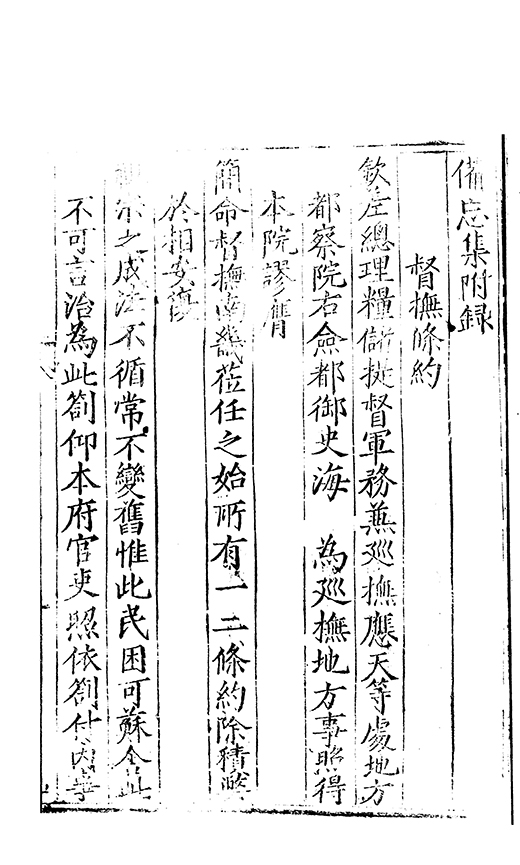 備忘集附録
督撫條約
欽差總理糧儲提督軍務兼廵撫應天等處地方
都察院右僉都御史海 為廵撫地方事照得
本院謬膺
簡命督撫南畿莅任之始所有一二條約除積弊
於相安復
祖宗之成法不循常不變舊惟此民困可蘇舍此
不可言治為此劄仰本府官吏照依劄付內事